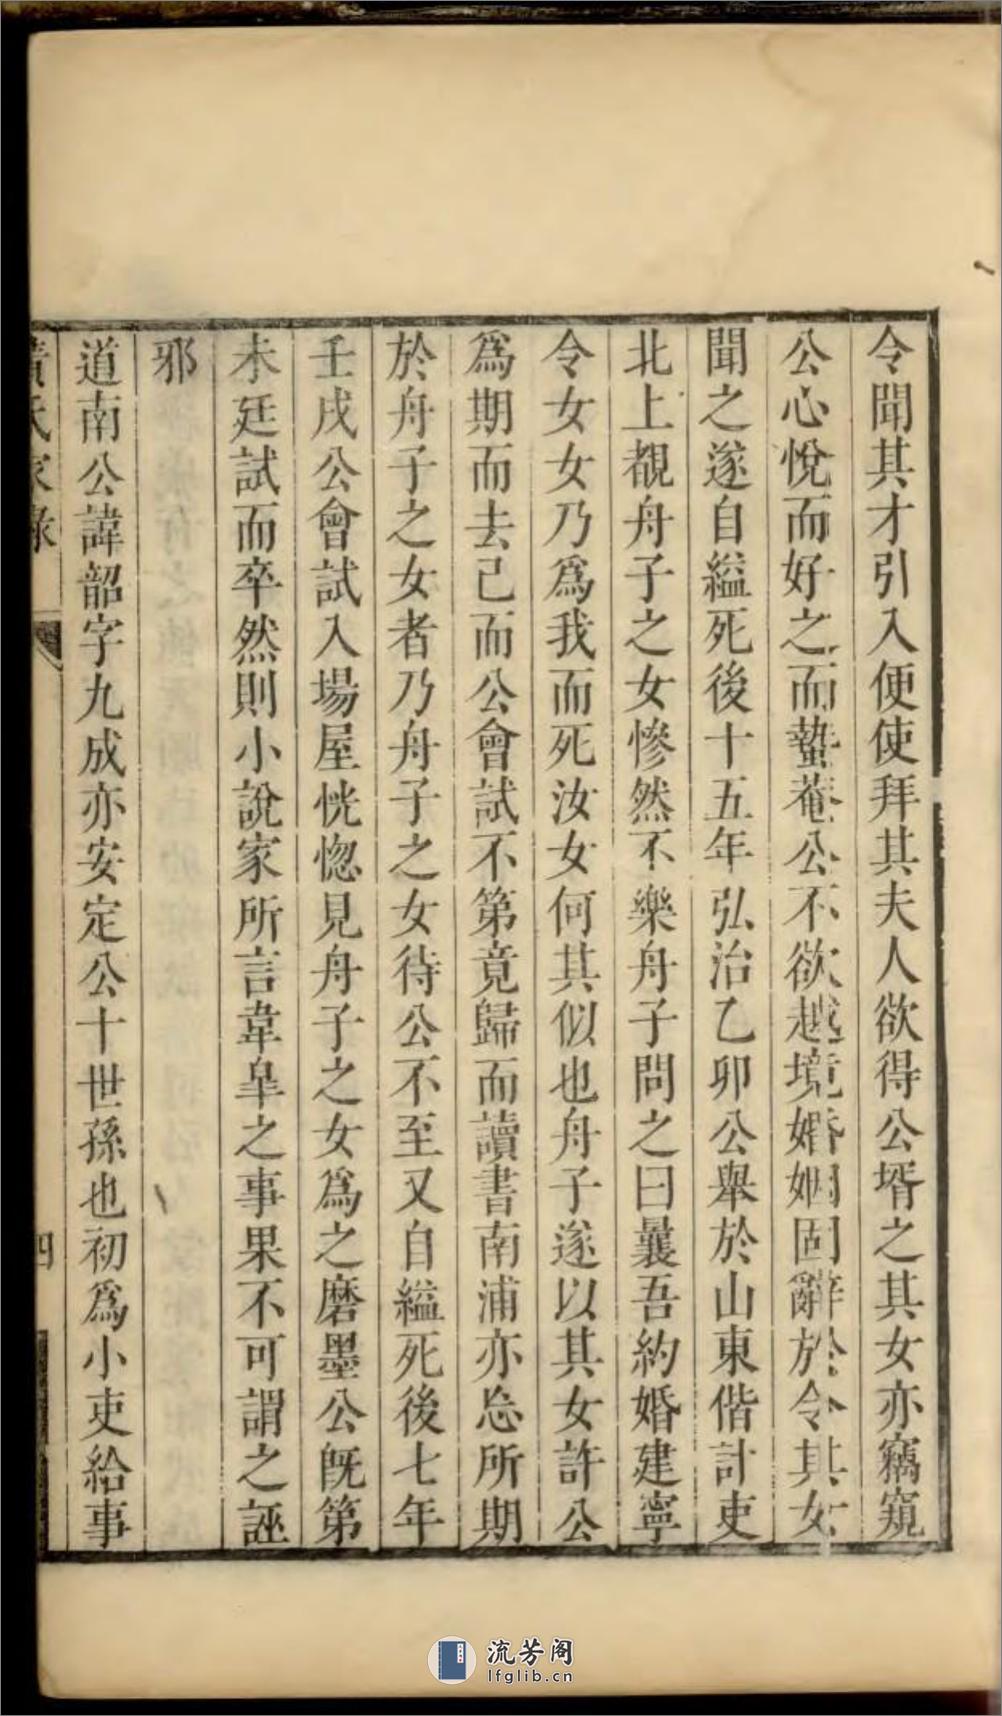 令聞其才引入便使拜其夫人欲得公壻之其女亦竊窺
公心悅而好之而蟄菴公不欲越境婚姻固辭於令其女
聞之遂自縊死後十五年弘治乙卯公舉於山東偕計吏
北上覩舟子之女慘然不樂舟子問之曰曩吾約婚建寧
令女女乃爲我而死汝女何其似也舟子遂以其女許公
爲期而去已而公會試不第竟歸而讀書南浦亦忘所期
於舟子之女者乃舟子之女待公不至又自縊死後七年
壬戌公會試入場屋恍惚見舟子之女爲之磨墨公旣第
未廷試而卒然則小說家所言韋臯之事果不可謂之誣
邪
道南公諱韶字九成亦安定公十世孫也初爲小吏給事
黃氏家錄
四
流芳阁
lfglib.cn